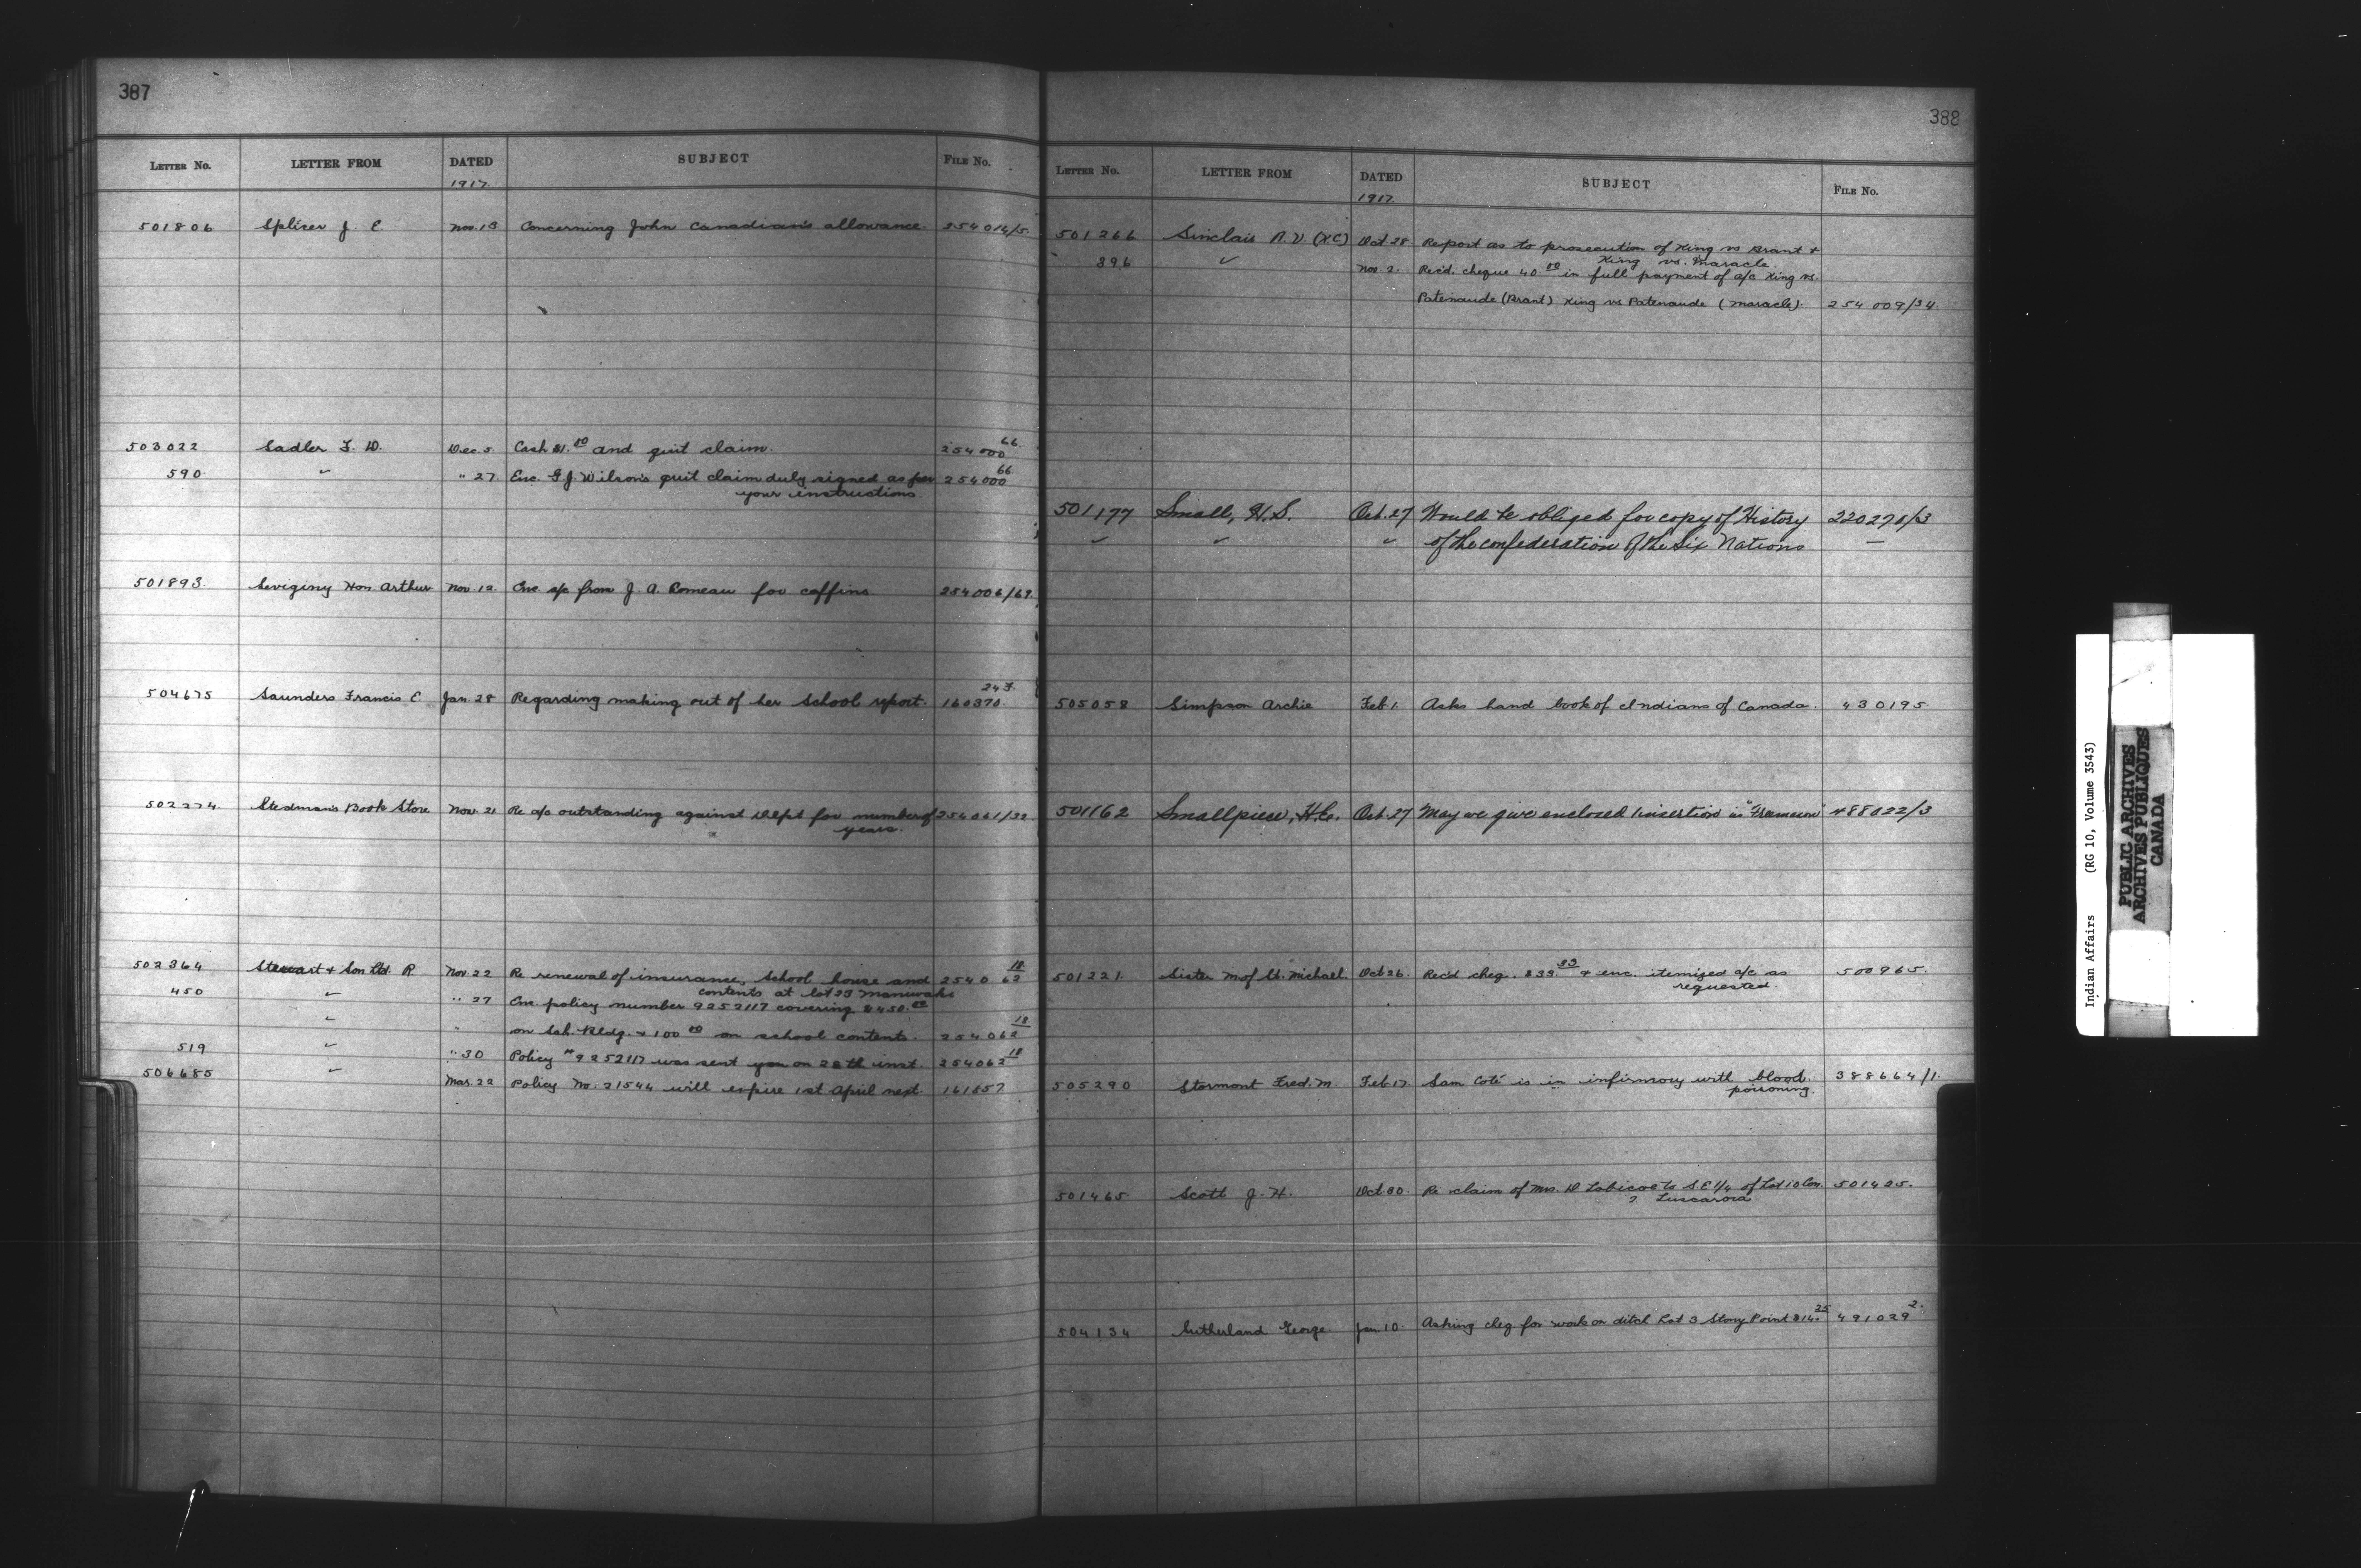 387
LETTER No. LETTER FROM DATED SUBJECT FILE No.
1917.
501806 Splicer J. E. Nov. 13 Concerning John Canadian's allowance. 254014/5.
503022 Sadler F. W. Dec. 5 Cash $1.00 and quit claim. 254000 66.
590. " " 27. Enc. G.J. Wilson's quit claim duly signed as per 254000 66.
your instructions.
501893. Sevigny Hon. Arthur Nov. 12. Enc a/c from J. A. Comeau for coffins 254006/69.
504675 Saunders Francis E. Jan. 28 Regarding making out of her School report. 160370.
502274. Stedman's Book Store Nov. 21 Re a/c outstanding against Dept for number of 254061/32
years.
502364 Stewart & Son Ltd. R Nov 22 Re renewal of insurance, School house and 254062 18
contents at lot 23 Maniwaki
450 " " 27 Enc. policy number 9252117 covering $450.00
" " on Sch. Bldg. & 100 00 on school contents. 254062 18
519 " " 30 Policy #9252117 was sent you on 28th inst. 254062 18
506685 " Mar. 22 Policy No. 21544 will expire 1st April next. 161657
388
LETTER No. LETTER FROM DATED SUBJECT FILE No.
1917.
501266 Sinclair R. V. (K.C) Oct 28. Report as to prosecution of King vs Brant &
King vs. Maracle.
396 " Nov. 2. Rec'd. cheque 40.00 in full payment of a/c King vs.
Patenaude (Brant) King vs Patenaude (Maracle). 254009/34.
501177 Small, H.S. Oct. 27 Would be obliged for copy of History 220270/3
" " " of the confederation of the Six Nations –
505058 Simpson Archie Feb 1. Asks hand book of Indians of Canada. 430195.
501162 Smallpiece, H.E. Oct. 27 May we give enclosed insertion in 488022/3
501221. Sister M of St. Michael. Oct 26. Rec'd cheq. $33.33 & enc. itemized a/c as 500965.
requested.
505290 Stormont Fred. M. Feb 17. Sam Coté is in infirmary with blood. 388664/1.
poisoning.
501465 Scott J. H. Oct 30. Re claim of Mrs. D Tobicoe to S.E 1/4 of Lot 10 Con. 501425.
2. Tuscarora
504134 Sutherland George Jan. 10. Asking cheq for work on ditch Lot 3 Stony Point $14.25 491029 2.
Indian Affairs (RG 10, Volume 3543)
PUBLIC ARCHIVES
ARCHIVES PUBLIQUES
CANADA